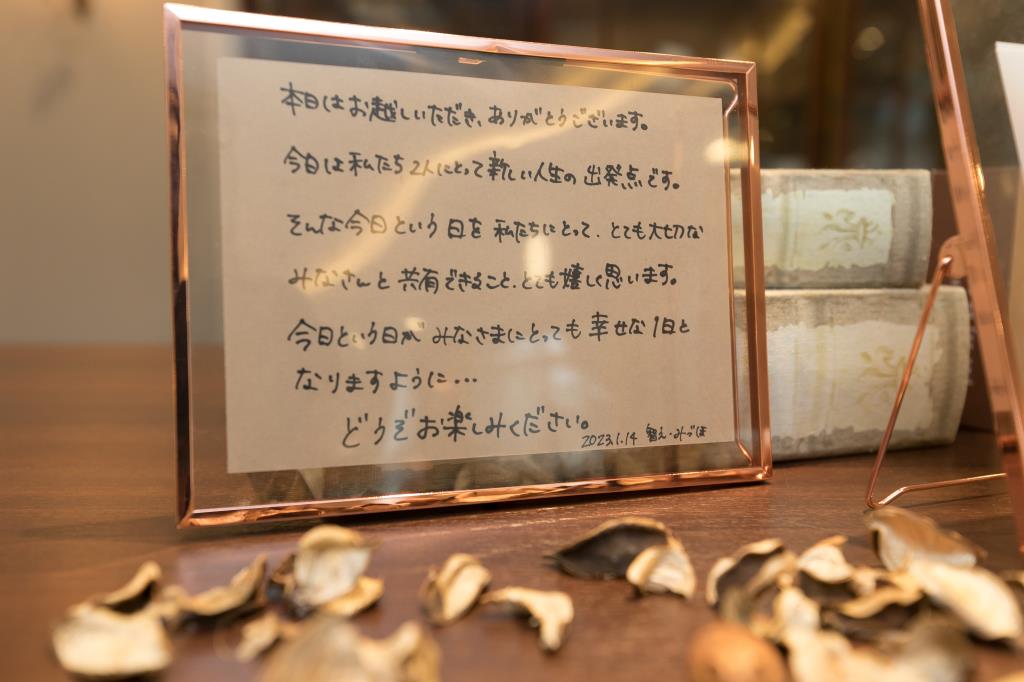 本日はお越しいただき、ありがとうございます。
今日は私たち2人にとって新しい人生の出発点です。
そんな今日という日を私たちにとって、とても大切な
みなさんと共有できること、とても嬉しく思います。
今日という日がみなさまにとっても幸せな1日と
なりますように...
どうぞお楽しみください。
2023.1.14 みづほ